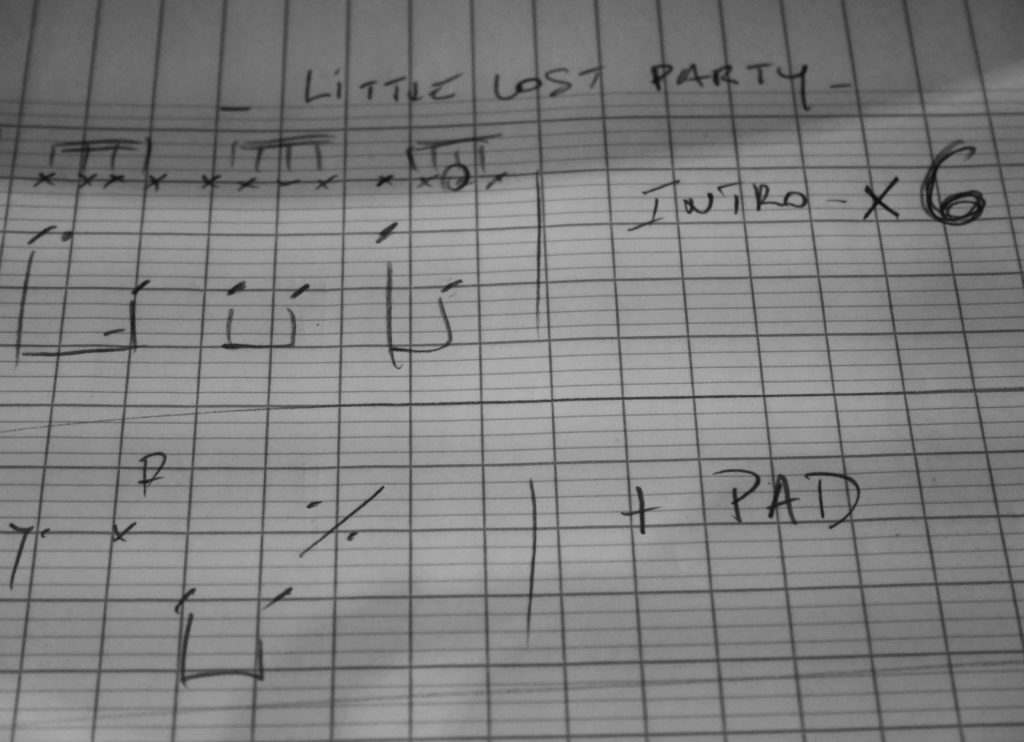 - LiTTLE LOST PARTY -
INTRO - X 6
+ PAD